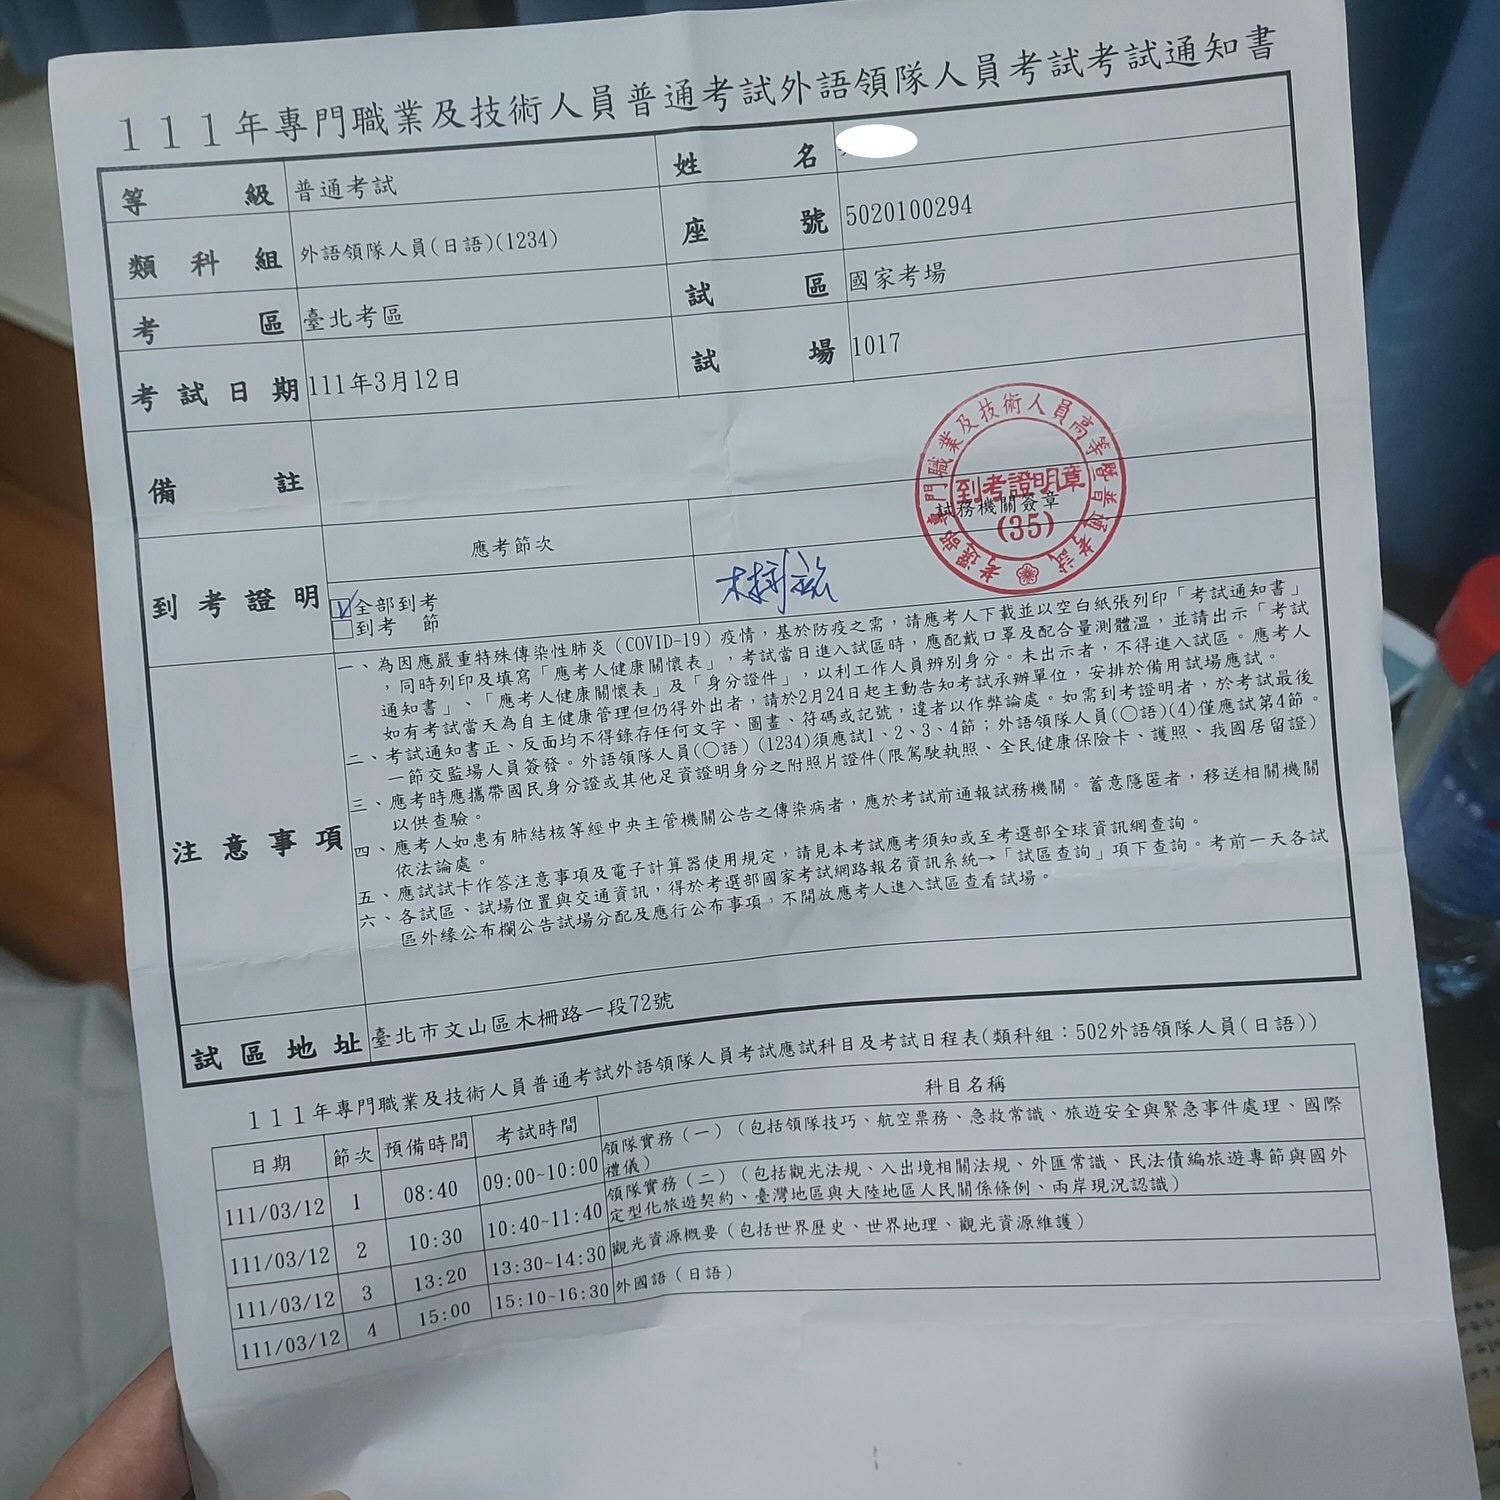 111年專門職業及技術人員普通考試外語領隊人員考試考試通知書
等級 普通考試 姓名
類科組 外語領隊人員(日語)(1234) 座號 5020100294
考區 臺北考區 試區 國家考場
考試日期 111年3月12日 試場 1017
備註
到考證明 應考節次 試務機關簽章
考選部專門職業及技術人員高等暨普通考試
到考證明章
(35)
V全部到考
到考 節
注意事項
一、為因應嚴重特殊傳染性肺炎(COVID-19)疫情，基於防疫之需，請應考人下載並以空白紙張列印「考試通知書」
，同時列印及填寫「應考人健康關懷表」，考試當日進入試區時，應配戴口罩及配合量測體溫，並請出示「考試
通知書」、「應考人健康關懷表」及「身分證件」，以利工作人員辨別身分。未出示者，不得進入試區。應考人
如有考試當天為自主健康管理但仍得外出者，請於2月24日起主動告知考試承辦單位，安排於備用試場應試。
二、考試通知書正、反面均不得錄存任何文字、圖畫、符碼或記號，違者以作弊論處。如需到考證明者，於考試最後
一節交監場人員簽發。外語領隊人員(○語)(1234)須應試1、2、3、4節；外語領隊人員(○語)(4)僅應試第4節。
三、應考時應攜帶國民身分證或其他足資證明身分之附照片證件(限駕駛執照、全民健康保險卡、護照、我國居留證)
以供查驗。
四、應考人如患有肺結核等經中央主管機關公告之傳染病者，應於考試前通報試務機關。蓄意隱匿者，移送相關機關
依法論處。
五、應試試卡作答注意事項及電子計算器使用規定，請見本考試應考須知或至考選部全球資訊網查詢。
六、各試區、試場位置與交通資訊，得於考選部國家考試網路報名資訊系統→「試區查詢」項下查詢。考前一天各試
區外緣公布欄公告試場分配及應行公布事項，不開放應考人進入試區查看試場。
試區地址 臺北市文山區木柵路一段72號
111年專門職業及技術人員普通考試外語領隊人員考試應試科目及考試日程表(類科組：502外語領隊人員(日語))
日期 節次 預備時間 考試時間 科目名稱
111/03/12 1 08:40 09:00~10:00 領隊實務(一)(包括領隊技巧、航空票務、急救常識、旅遊安全與緊急事件處理、國際
禮儀)
111/03/12 2 10:30 10:40~11:40 領隊實務(二)(包括觀光法規、入出境相關法規、外匯常識、民法債編旅遊專節與國外
定型化旅遊契約、臺灣地區與大陸地區人民關係條例、兩岸現況認識)
111/03/12 3 13:20 13:30~14:30 觀光資源概要(包括世界歷史、世界地理、觀光資源維護)
111/03/12 4 15:00 15:10~16:30 外國語(日語)